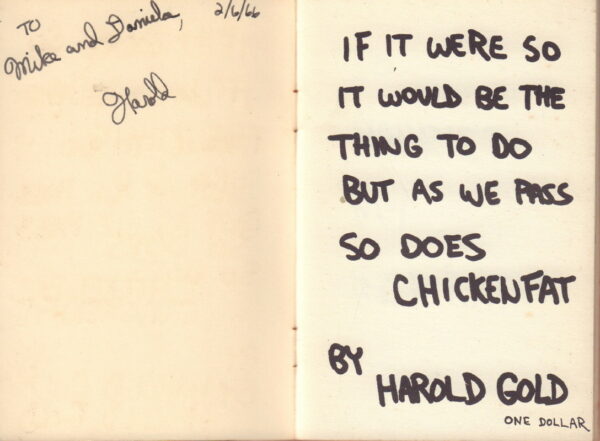 TO
Mike and Daniela,
2/6/66
Harold
IF IT WERE SO
IT WOULD BE THE
THING TO DO
BUT AS WE PASS
SO DOES
CHICKENFAT
BY
HAROLD GOLD
ONE DOLLAR